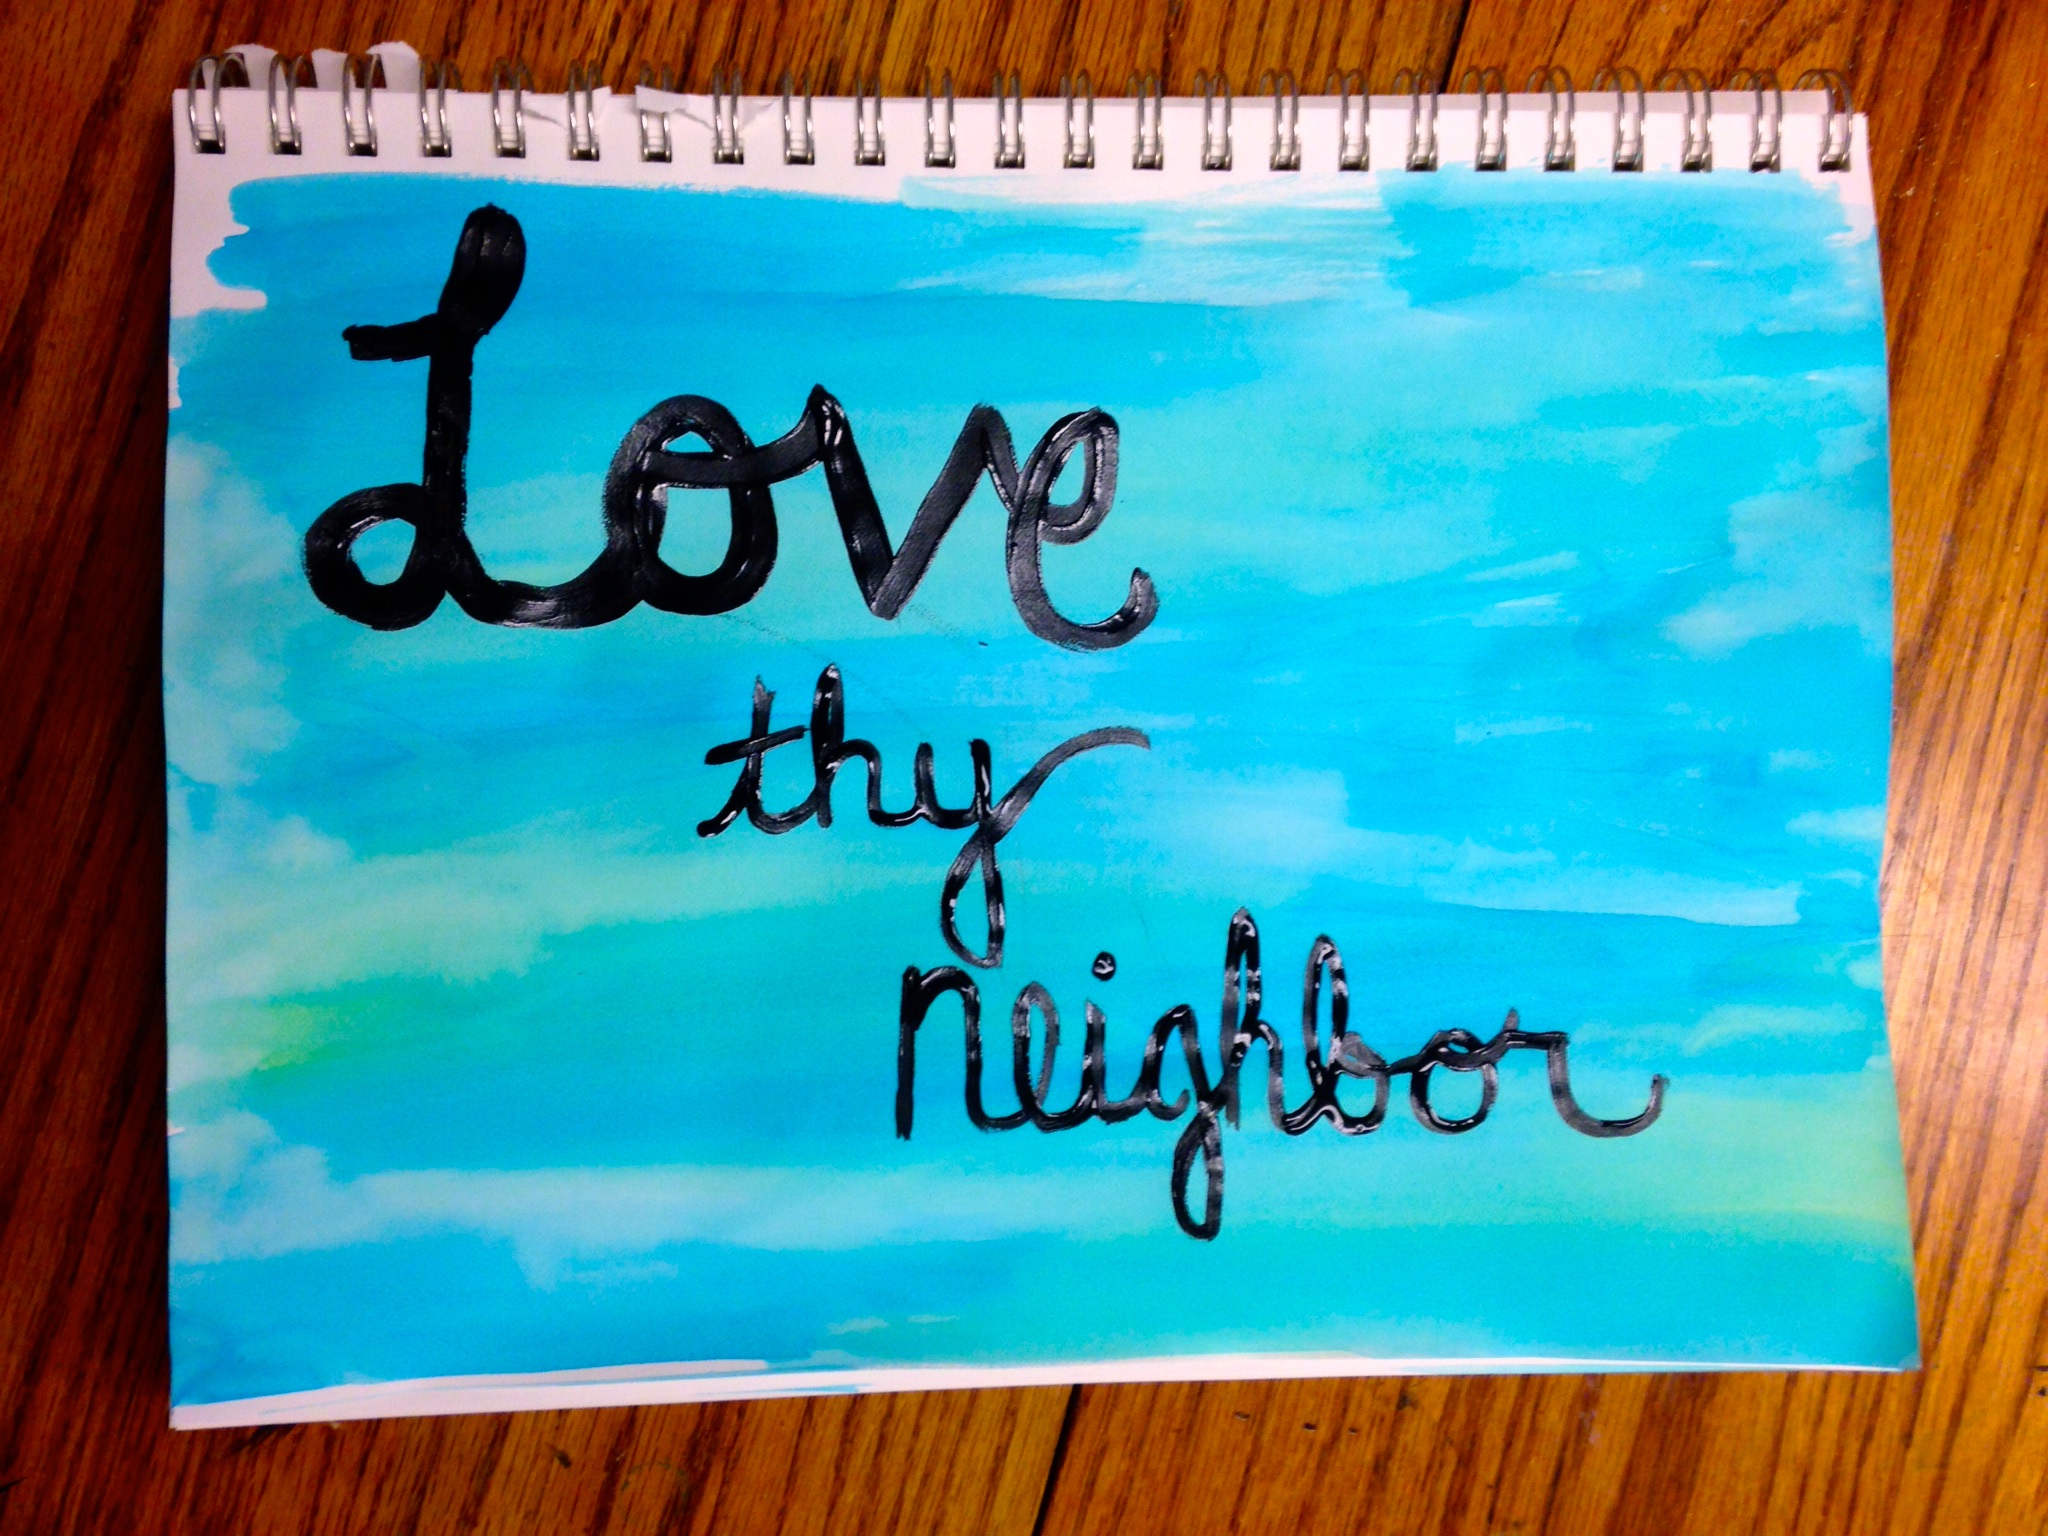 Love
thy
neighbor